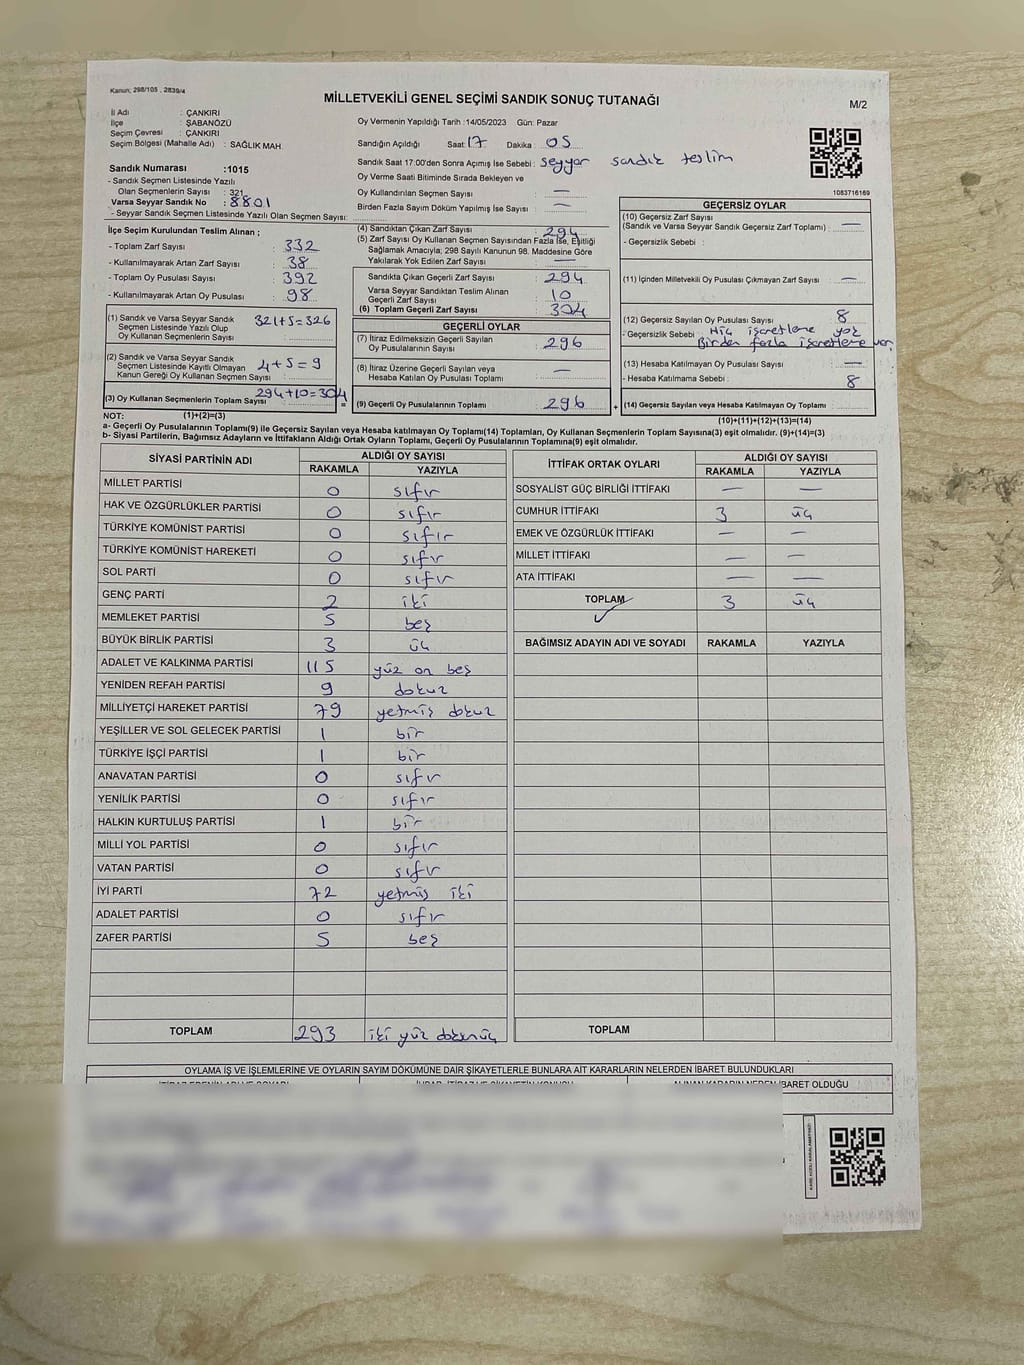 Kanun; 298/105 , 2839/4
MİLLETVEKİLİ GENEL SEÇİMİ SANDIK SONUÇ TUTANAĞI
M/2
İl Adı : ÇANKIRI
İlçe : ŞABANÖZÜ
Seçim Çevresi : ÇANKIRI
Seçim Bölgesi (Mahalle Adı) : SAĞLIK MAH.
Sandık Numarası :1015
- Sandık Seçmen Listesinde Yazılı
Olan Seçmenlerin Sayısı : 321
Varsa Seyyar Sandık No : 8801
- Seyyar Sandık Seçmen Listesinde Yazılı Olan Seçmen Sayısı:
Oy Vermenin Yapıldığı Tarih :14/05/2023 Gün: Pazar
Sandığın Açıldığı Saat: 17 Dakika : 05
Sandık Saat 17:00'den Sonra Açılmış İse Sebebi : Seyyar sandık teslim
Oy Verme Saati Bitiminde Sırada Bekleyen ve
Oy Kullandırılan Seçmen Sayısı : —
Birden Fazla Sayım Döküm Yapılmış İse Sayısı : —
1083716169
İlçe Seçim Kurulundan Teslim Alınan ;
- Toplam Zarf Sayısı : 332
- Kullanılmayarak Artan Zarf Sayısı : 38
- Toplam Oy Pusulası Sayısı : 392
- Kullanılmayarak Artan Oy Pusulası : 98
(1) Sandık ve Varsa Seyyar Sandık
Seçmen Listesinde Yazılı Olup
Oy Kullanan Seçmen Sayısı : 321+5=326
(2) Sandık ve Varsa Seyyar Sandık
Seçmen Listesinde Kayıtlı Olmayan
Kanun Gereği Oy Kullanan Seçmen Sayısı : 4+5=9
(3) Oy Kullanan Seçmenlerin Toplam Sayısı : 294+10=304
(4) Sandıktan Çıkan Zarf Sayısı : 294
(5) Zarf Sayısı Oy Kullanan Seçmen Sayısından Fazla İse, Eşitliği
Sağlamak Amacıyla; 298 Sayılı Kanunun 98. Maddesine Göre
Yakılarak Yok Edilen Zarf Sayısı : —
Sandıkta Çıkan Geçerli Zarf Sayısı : 294
Varsa Seyyar Sandıktan Teslim Alınan
Geçerli Zarf Sayısı : 10
(6) Toplam Geçerli Zarf Sayısı : 304
GEÇERLİ OYLAR
(7) İtiraz Edilmeksizin Geçerli Sayılan
Oy Pusulalarının Sayısı : 296
(8) İtiraz Üzerine Geçerli Sayılan veya
Hesaba Katılan Oy Pusulası Toplamı : —
= (9) Geçerli Oy Pusulalarının Toplamı : 296
GEÇERSİZ OYLAR
(10) Geçersiz Zarf Sayısı
(Sandık ve Varsa Seyyar Sandık Geçersiz Zarf Toplamı) : —
- Geçersizlik Sebebi :
(11) İçinden Milletvekili Oy Pusulası Çıkmayan Zarf Sayısı : —
(12) Geçersiz Sayılan Oy Pusulası Sayısı : 8
- Geçersizlik Sebebi : Hiç işaretleme yok
Birden fazla işaretleme var
(13) Hesaba Katılmayan Oy Pusulası Sayısı : —
- Hesaba Katılmama Sebebi : 8
+ (14) Geçersiz Sayılan veya Hesaba Katılmayan Oy Toplamı :
NOT: (1)+(2)=(3)
(10)+(11)+(12)+(13)=(14)
a- Geçerli Oy Pusulalarının Toplamı(9) ile Geçersiz Sayılan veya Hesaba katılmayan Oy Toplamı(14) Toplamları, Oy Kullanan Seçmenlerin Toplam Sayısına(3) eşit olmalıdır. (9)+(14)=(3)
b- Siyasi Partilerin, Bağımsız Adayların ve İttifakların Aldığı Ortak Oyların Toplamı, Geçerli Oy Pusulalarının Toplamına(9) eşit olmalıdır.
SİYASİ PARTİNİN ADI ALDIĞI OY SAYISI
RAKAMLA YAZIYLA
MİLLET PARTİSİ 0 sıfır
HAK VE ÖZGÜRLÜKLER PARTİSİ 0 sıfır
TÜRKİYE KOMÜNİST PARTİSİ 0 sıfır
TÜRKİYE KOMÜNİST HAREKETİ 0 sıfır
SOL PARTİ 0 sıfır
GENÇ PARTİ 2 iki
MEMLEKET PARTİSİ 5 beş
BÜYÜK BİRLİK PARTİSİ 3 üç
ADALET VE KALKINMA PARTİSİ 115 yüz on beş
YENİDEN REFAH PARTİSİ 9 dokuz
MİLLİYETÇİ HAREKET PARTİSİ 79 yetmiş dokuz
YEŞİLLER VE SOL GELECEK PARTİSİ 1 bir
TÜRKİYE İŞÇİ PARTİSİ 1 bir
ANAVATAN PARTİSİ 0 sıfır
YENİLİK PARTİSİ 0 sıfır
HALKIN KURTULUŞ PARTİSİ 1 bir
MİLLİ YOL PARTİSİ 0 sıfır
VATAN PARTİSİ 0 sıfır
İYİ PARTİ 72 yetmiş iki
ADALET PARTİSİ 0 sıfır
ZAFER PARTİSİ 5 beş
TOPLAM 293 iki yüz doksanüç
İTTİFAK ORTAK OYLARI ALDIĞI OY SAYISI
RAKAMLA YAZIYLA
SOSYALİST GÜÇ BİRLİĞİ İTTİFAKI — —
CUMHUR İTTİFAKI 3 üç
EMEK VE ÖZGÜRLÜK İTTİFAKI — —
MİLLET İTTİFAKI — —
ATA İTTİFAKI — —
TOPLAM 3 üç
BAĞIMSIZ ADAYIN ADI VE SOYADI RAKAMLA YAZIYLA
TOPLAM
OYLAMA İŞ VE İŞLEMLERİNE VE OYLARIN SAYIM DÖKÜMÜNE DAİR ŞİKAYETLERLE BUNLARA AİT KARARLARIN NELERDEN İBARET BULUNDUKLARI
ALINAN KARARIN NEDEN İBARET OLDUĞU